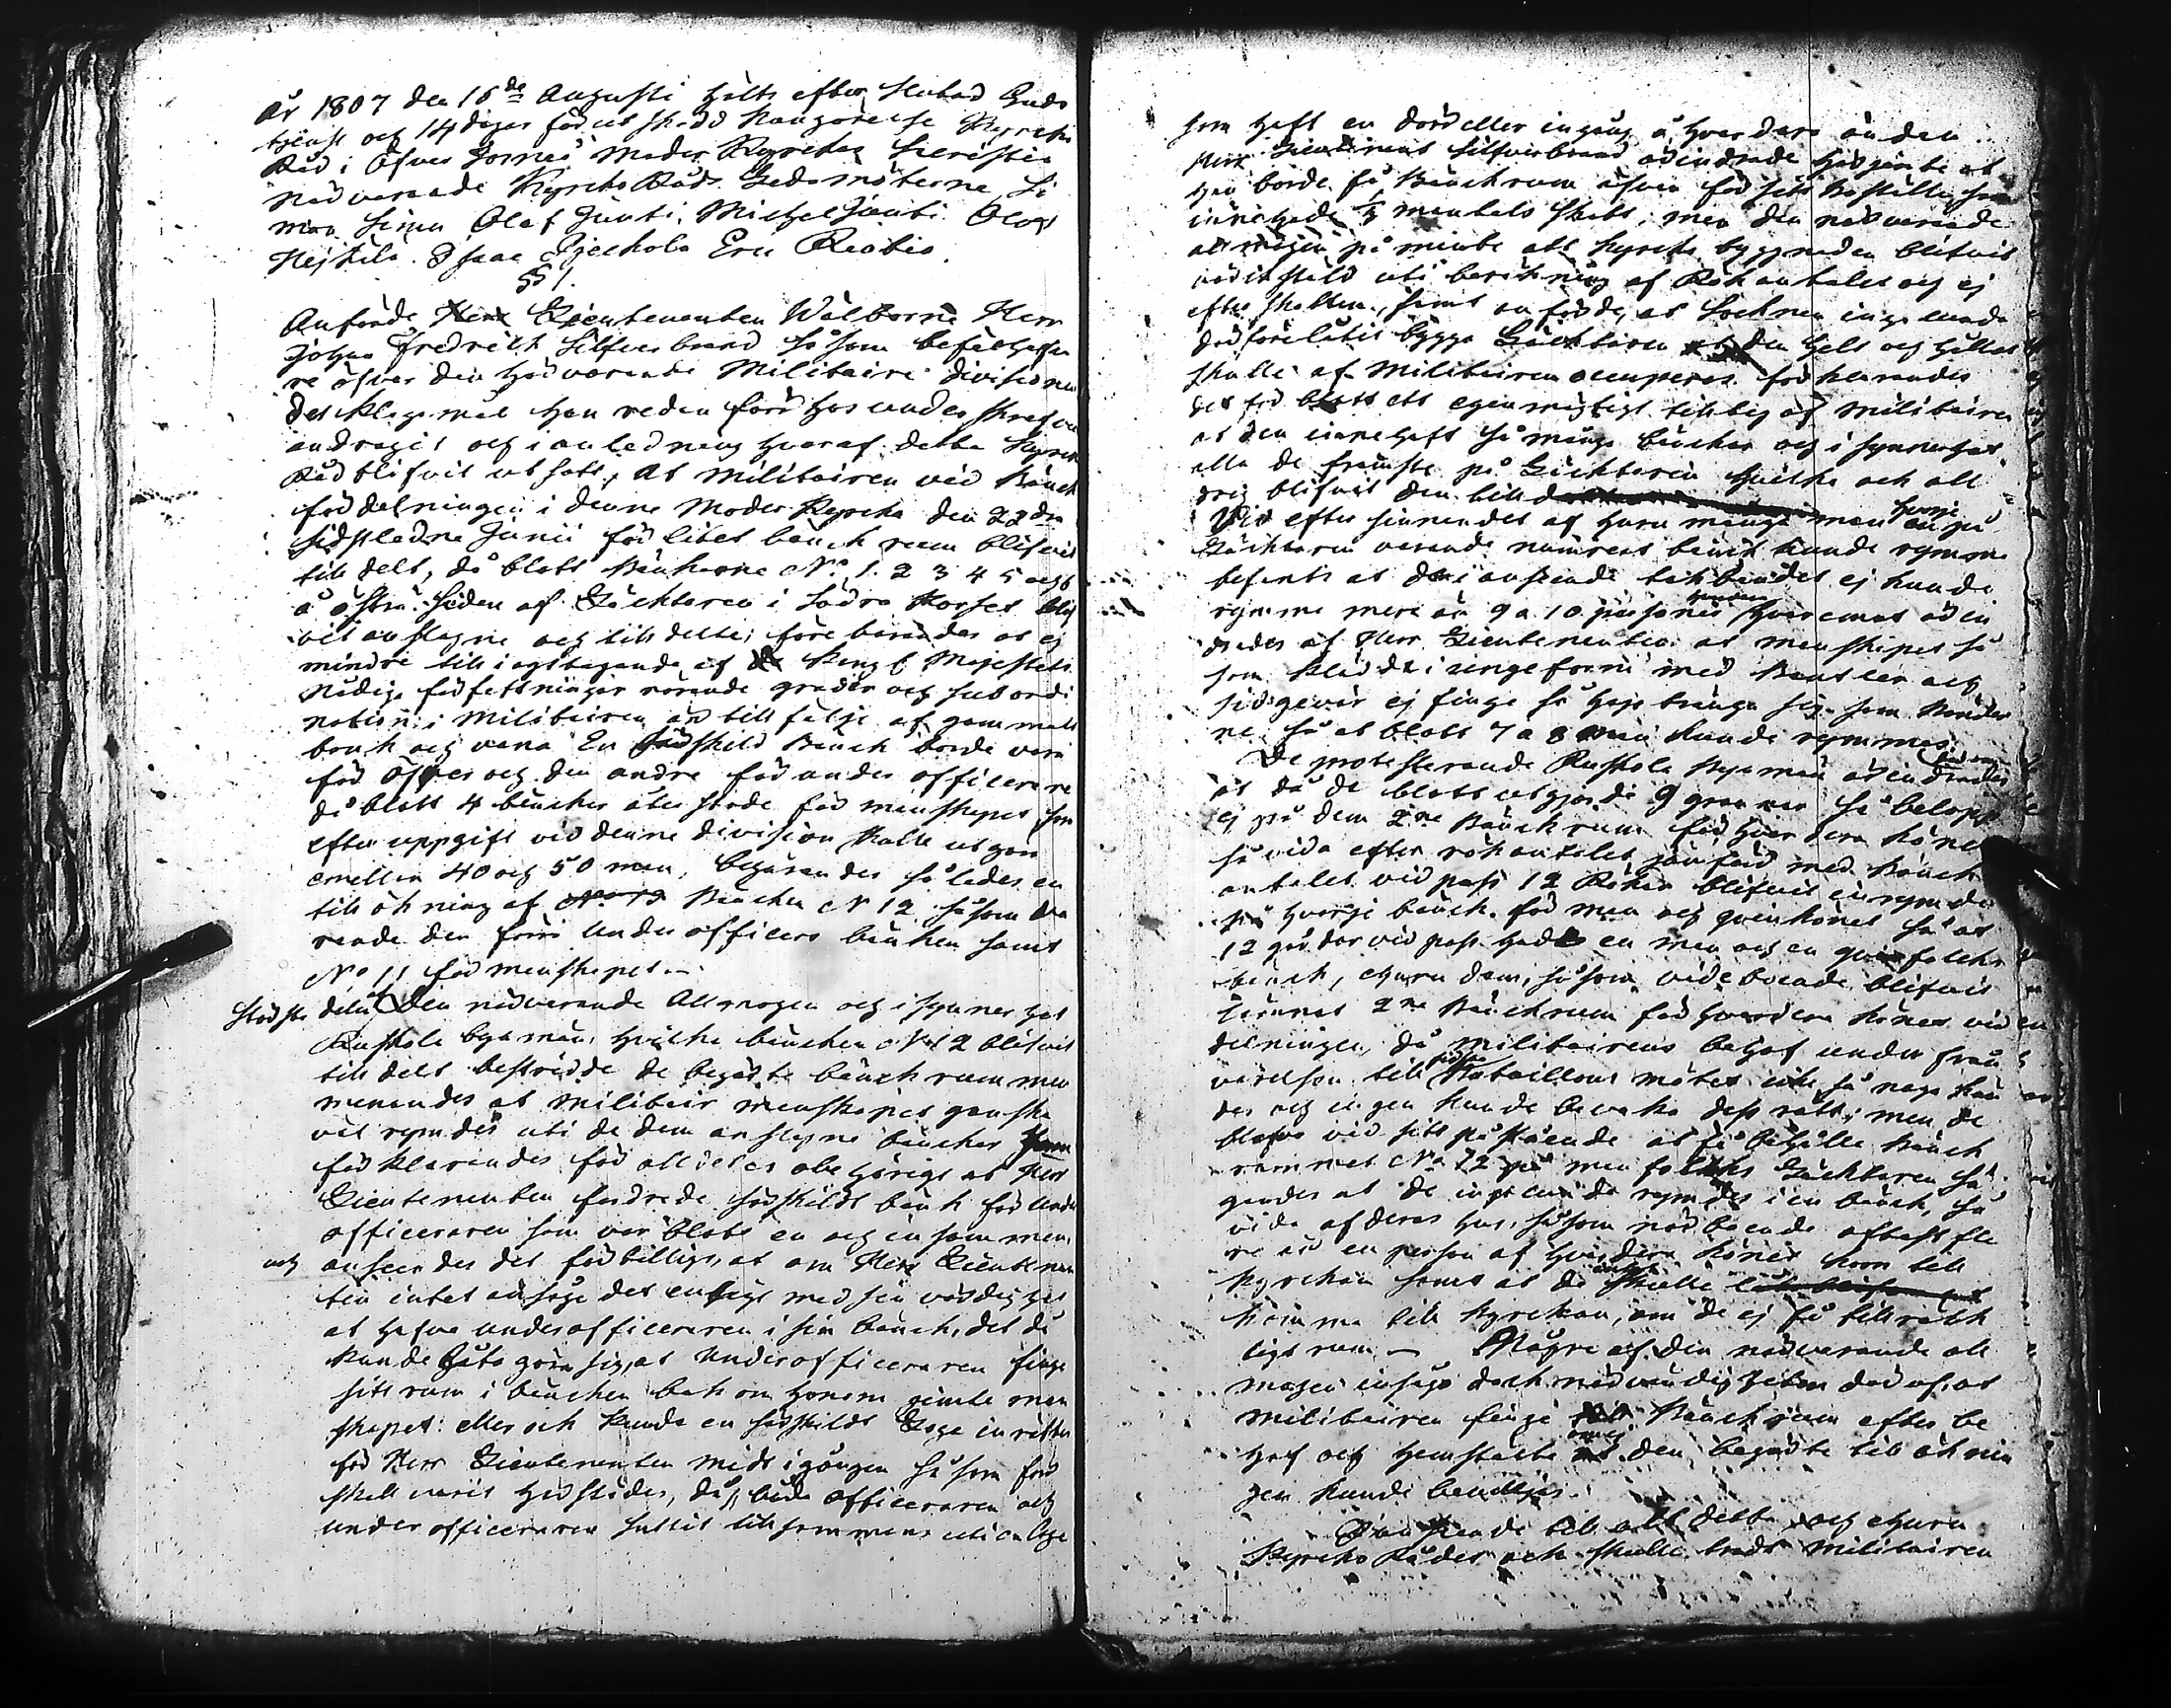 År 1807 den 16de Augusti hölts efter slutad Guds
tjenst och 14 dagar förut skedd kungörelse Kyrcko
Råd i Öfver Torneå Moder Kyrckas Sacristia
närvarande Kyrcko Råds Ledamöterne Si
mon Simu Olof Junti, Michel Junti Olof
Hejkila Isaac Eric
§ 1.
Anförde Herr Lieutenanten Wälborne Herr
Johan Fredrick Silfverbrand såsom befälhafva
re öfver den härvarande Militaire divisionen
det klagomål han redan förr hos undertecknad
andragit och i anledning hvaraf detta Kyrcko
Råd blifvit utsatt, at Militairen vid Bänck
fördelningen i denne Moder Kyrcka den 22dra
sidstledne Junii för litet bänck rum blifvit
till delt, då blott Bänckarne No 1. 2 3 4 5 och 6
å östra sidan af Läcktaren i södra Korset blif
vit anslagne och till delte; förebärandes at ej
mindre till iagttagande af Kongl Majestets
nådiga författningar rörande grader och subordi
nation i Militairen än till följe af gammalt
bruk och vana En särskild Bänck borde vara
för Öfver och den andre för under officerare
då blott 4 bänckar återstode för manskapet som
efter uppgift vid denne division skulle utgöra
emellan 40 och 50 man, begärandes således en
till ökning af Bäncken N 12 såsom va
rande den förra Under officers bäncken samt
No 11 för manskapet.
största delen Den närvarande Allmogen och i synnerhet
Ruskola byamän, hvilka bäncken No 12 blifvit
till delt bestridde de begärte bänckrummen
menandes at Militair manskapet ganska
väl rymdes uti de dem anslagne bänckar
förklarandes för alldeles obehörigt at Herr
Lieutenanten fordrade särskildt bänck för Under
officeraren som var blott en och en sammen
och anseendes det för billigt, at om Herr Lieutenan
ten intet ansåge det enligt med sin värdighet
at hafva underofficeraren i sin bänck, det då
kunde låta göra sig, at Underofficeraren finge
sitt rum i bäncken bak om honom jemte man
skapet: eller och kunde en särskildt Loge inrättas
för Herr Lieutenanten midt i gången såsom förr
skall varit härstädes, då både officeraren och
under officeraren suttit tillsammans uti en loge
som haft en dörr eller ingång å hvardera än den
Herr Lieutenant Silfverbrand erindrade härjämte at
han borde få Bänckrum äfven för sitt boställe som
innehade 1/2 mantals skatt; men den närvarande
allmogen påminte att Kyrcko byggnaden blifvit
värckstäld uti beräkning af Rökantalet och ej
efter skatten, samt anförde, at Socknen inga lunda
därföre låtit bygga Läcktaren at den helt och hållet
skulle af Militairen occuperas förklarandes
det för blott ett egenmäktigt tilltag af Militairen
at den innehaft så många bänckar och i synnerhet
alla de främste på Läcktaren hvilka ock all
drig blifvit den till
Vid efter sinnandet af huru många man hvarje på
Läcktaren varande numrerat bänck kunde rymma
befants at den i anseende till bandet ej kunde
rymma mera än 9 a 10 personer hvaremot erin
drades af Herr Lieutenanten at manskapet så
som klädde i uniforme med Bantler och
sidgevär ej finge så hop tränga sig som Bönder
ne så at blott 7 a 8 man kunde rymmas.
De protesterande Ruskola byamän erindrade
at då de blott utgjorde 9 grannar så belöpte
ej på dem 2ne Bänckrum för hvardera könet
så vida efter rökantalet jämfört med Bänck
antalet vid pass 12 Rökar blifvit inrymde
på hvarje bänck för man och qvinkönet så at
12 gårdar vid pass hade en man och en qvinfolcks
bänck, ehuru dem, såsom vide boende blifvit
lämnat 2ne Bänckrum för hvardera könet vid
delningen, då Militairens behof under från
varelsen till sidsta Bataillons mötet icke så noga kän
des och ingen kunde bevaka dess rätt; men de
blefvo vid sitt påstående at få behålla Bänck
rummet No 12 på man folcks Läcktaren sä
gandes at de ingalunda rymdes i en bänck, så
vida af deras hus, såsom närboende oftast fle
re än en person af hvardera könet kom till
Kyrckan samt at de skulle
komma till Kyrckan, om de ej få tillräck
ligt rum. Någre af den närvarande all
mogen insågo dock nödvändigheten däraf at
Militairen finge Bänck rum efter be
hof och hemstälte om ej den begärte till öknin
gen kunde beviljas.
I anseende till allt detta och ehuru
Kyrcko Rådet och skulle trodt Militairen